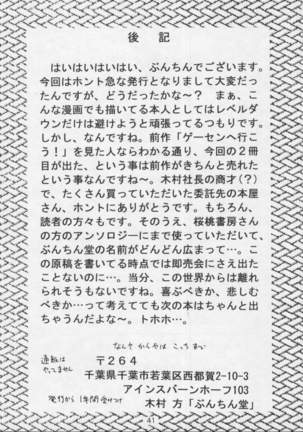 後記
はいはいはいはい、ぶんちんでございます。
今回はホント急な発行となりまして大変だっ
たんですが、どうだったかな~？　まぁ、こ
んな漫画でも描いてる本人としてはレベルダ
ウンだけは避けようと頑張ってるつもりです。
しかし、なんですね。前作「ゲーセンへ行こ
う！」を見た人ならわかる通り、今回の２冊
目が出た、という事は前作がきちんと売れた
という事なんですね~。木村社長の商才(？)
で、たくさん買っていただいた委託先の本屋
さん、ホントにありがとうです。もちろん、
読者の方々もです。そのうえ、桜桃書房さん
の方のアンソロジーにまで使っていただいて、
ぶんちん堂の名前がどんどん広まって…。こ
の原稿を書いてる時点では即売会にさえ出た
ことないのに…。当分、この世界からは離れ
られそうもないですね。喜ぶべきか、悲しむ
べきか…って考えてても次の本はちゃんと出
ちゃうんだよな~。トホホ…。
なんでもかんそは こっちまで
通販は
やってません
〒２６４
千葉県千葉市若葉区西都賀2-10-3
アインスバーンホーフ103
発行から1年間受けつけ
木村 方「ぶんちん堂」
41